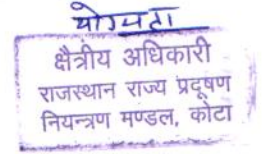 क्षेत्रीय अधिकारी
राजस्थान राज्य प्रदूषण
नियन्त्रण मण्डल, कोटा